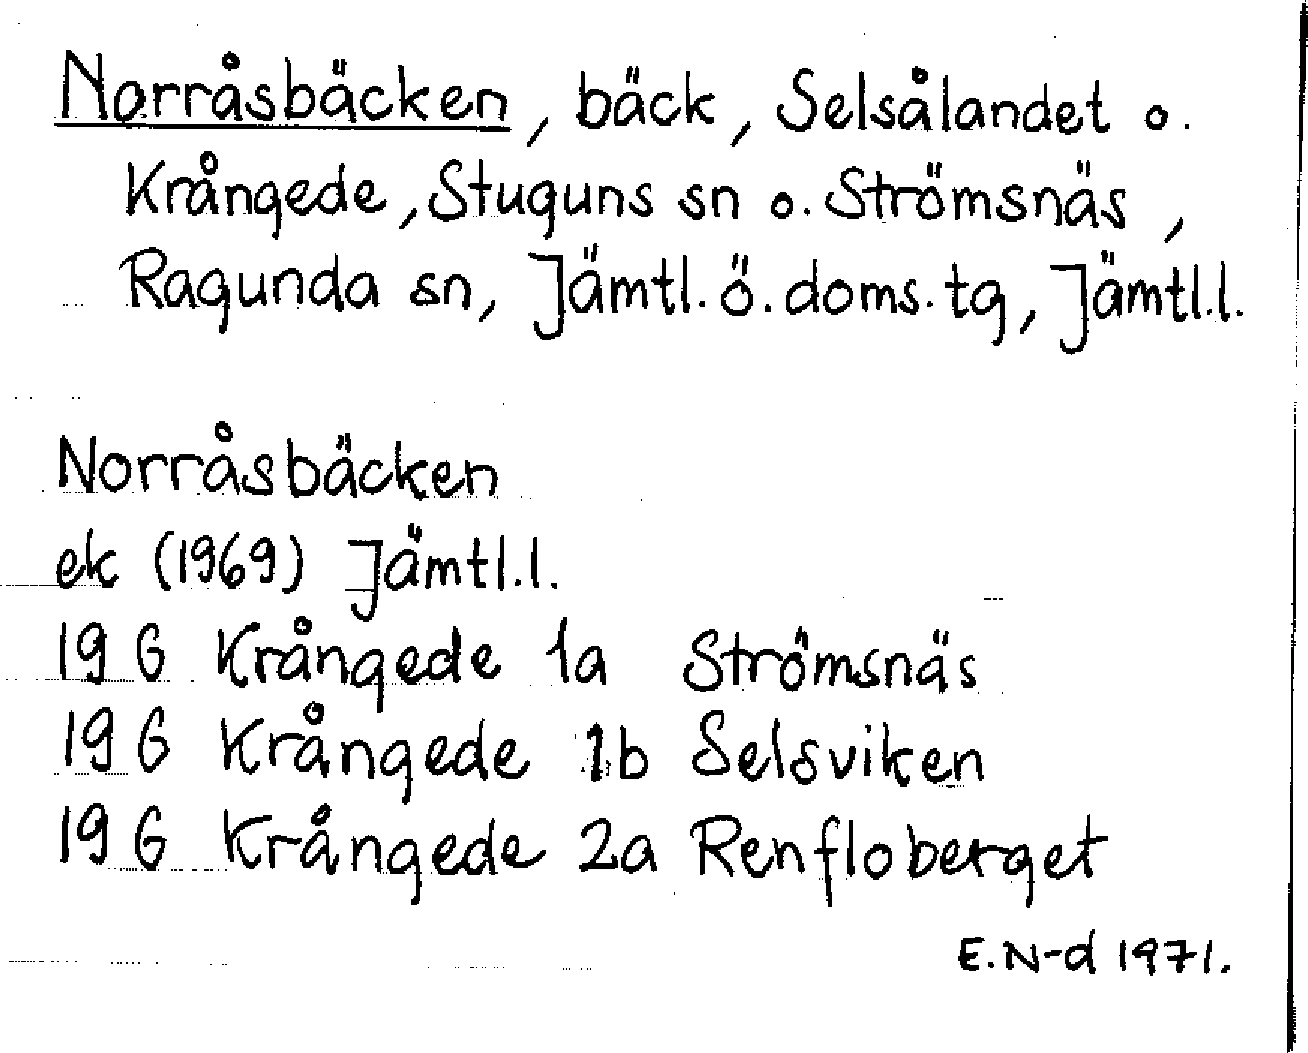 Norråsbäcken, bäck, Selsålandet o.
Krångede, Stuguns sn o. Strömsnäs,
Ragunda sn, Jämtl. ö. doms. tg, Jämtl.l.
Norråsbäcken
ek (1969) Jämtl.l.
19 G Krångede 1a Strömsnäs
19 G Krångede 1b Selsviken
19 G Krångede 2a Renfloberget
E.N-d 1971.